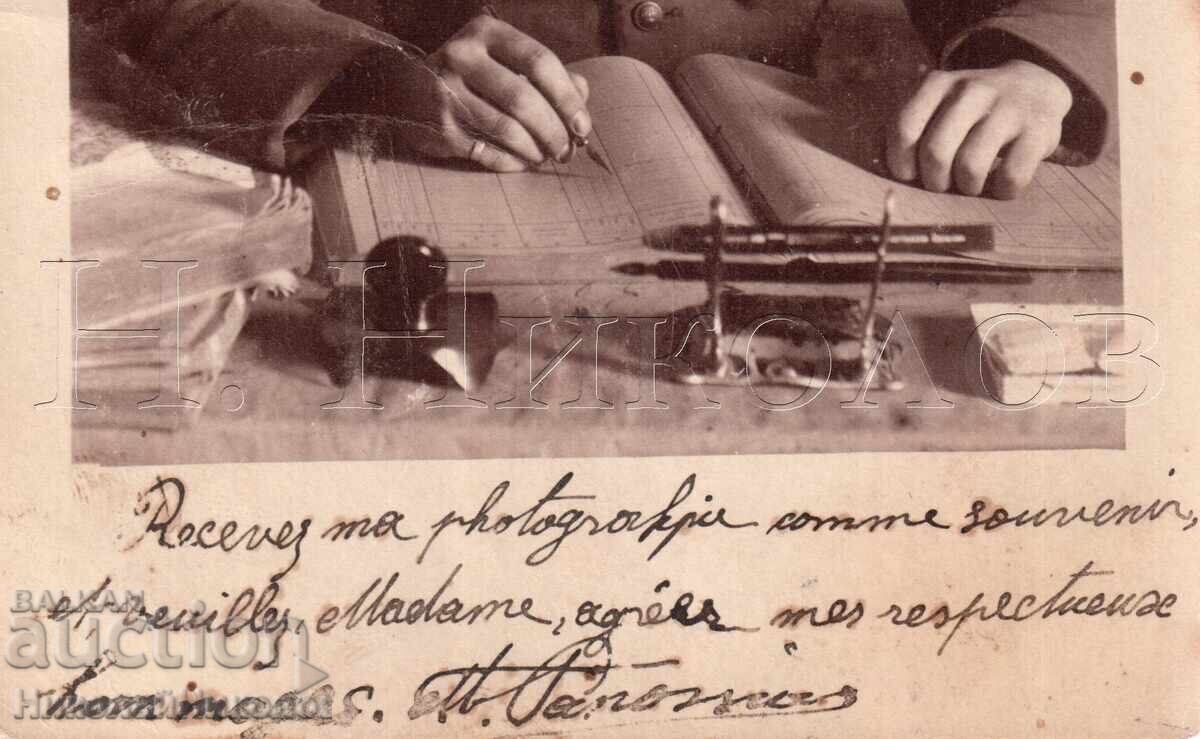 Н. Николов
Recevez ma photographie comme souvenir,
et veuillez, Madame, agréer mes respectueux
hommages.
BALKAN
auction